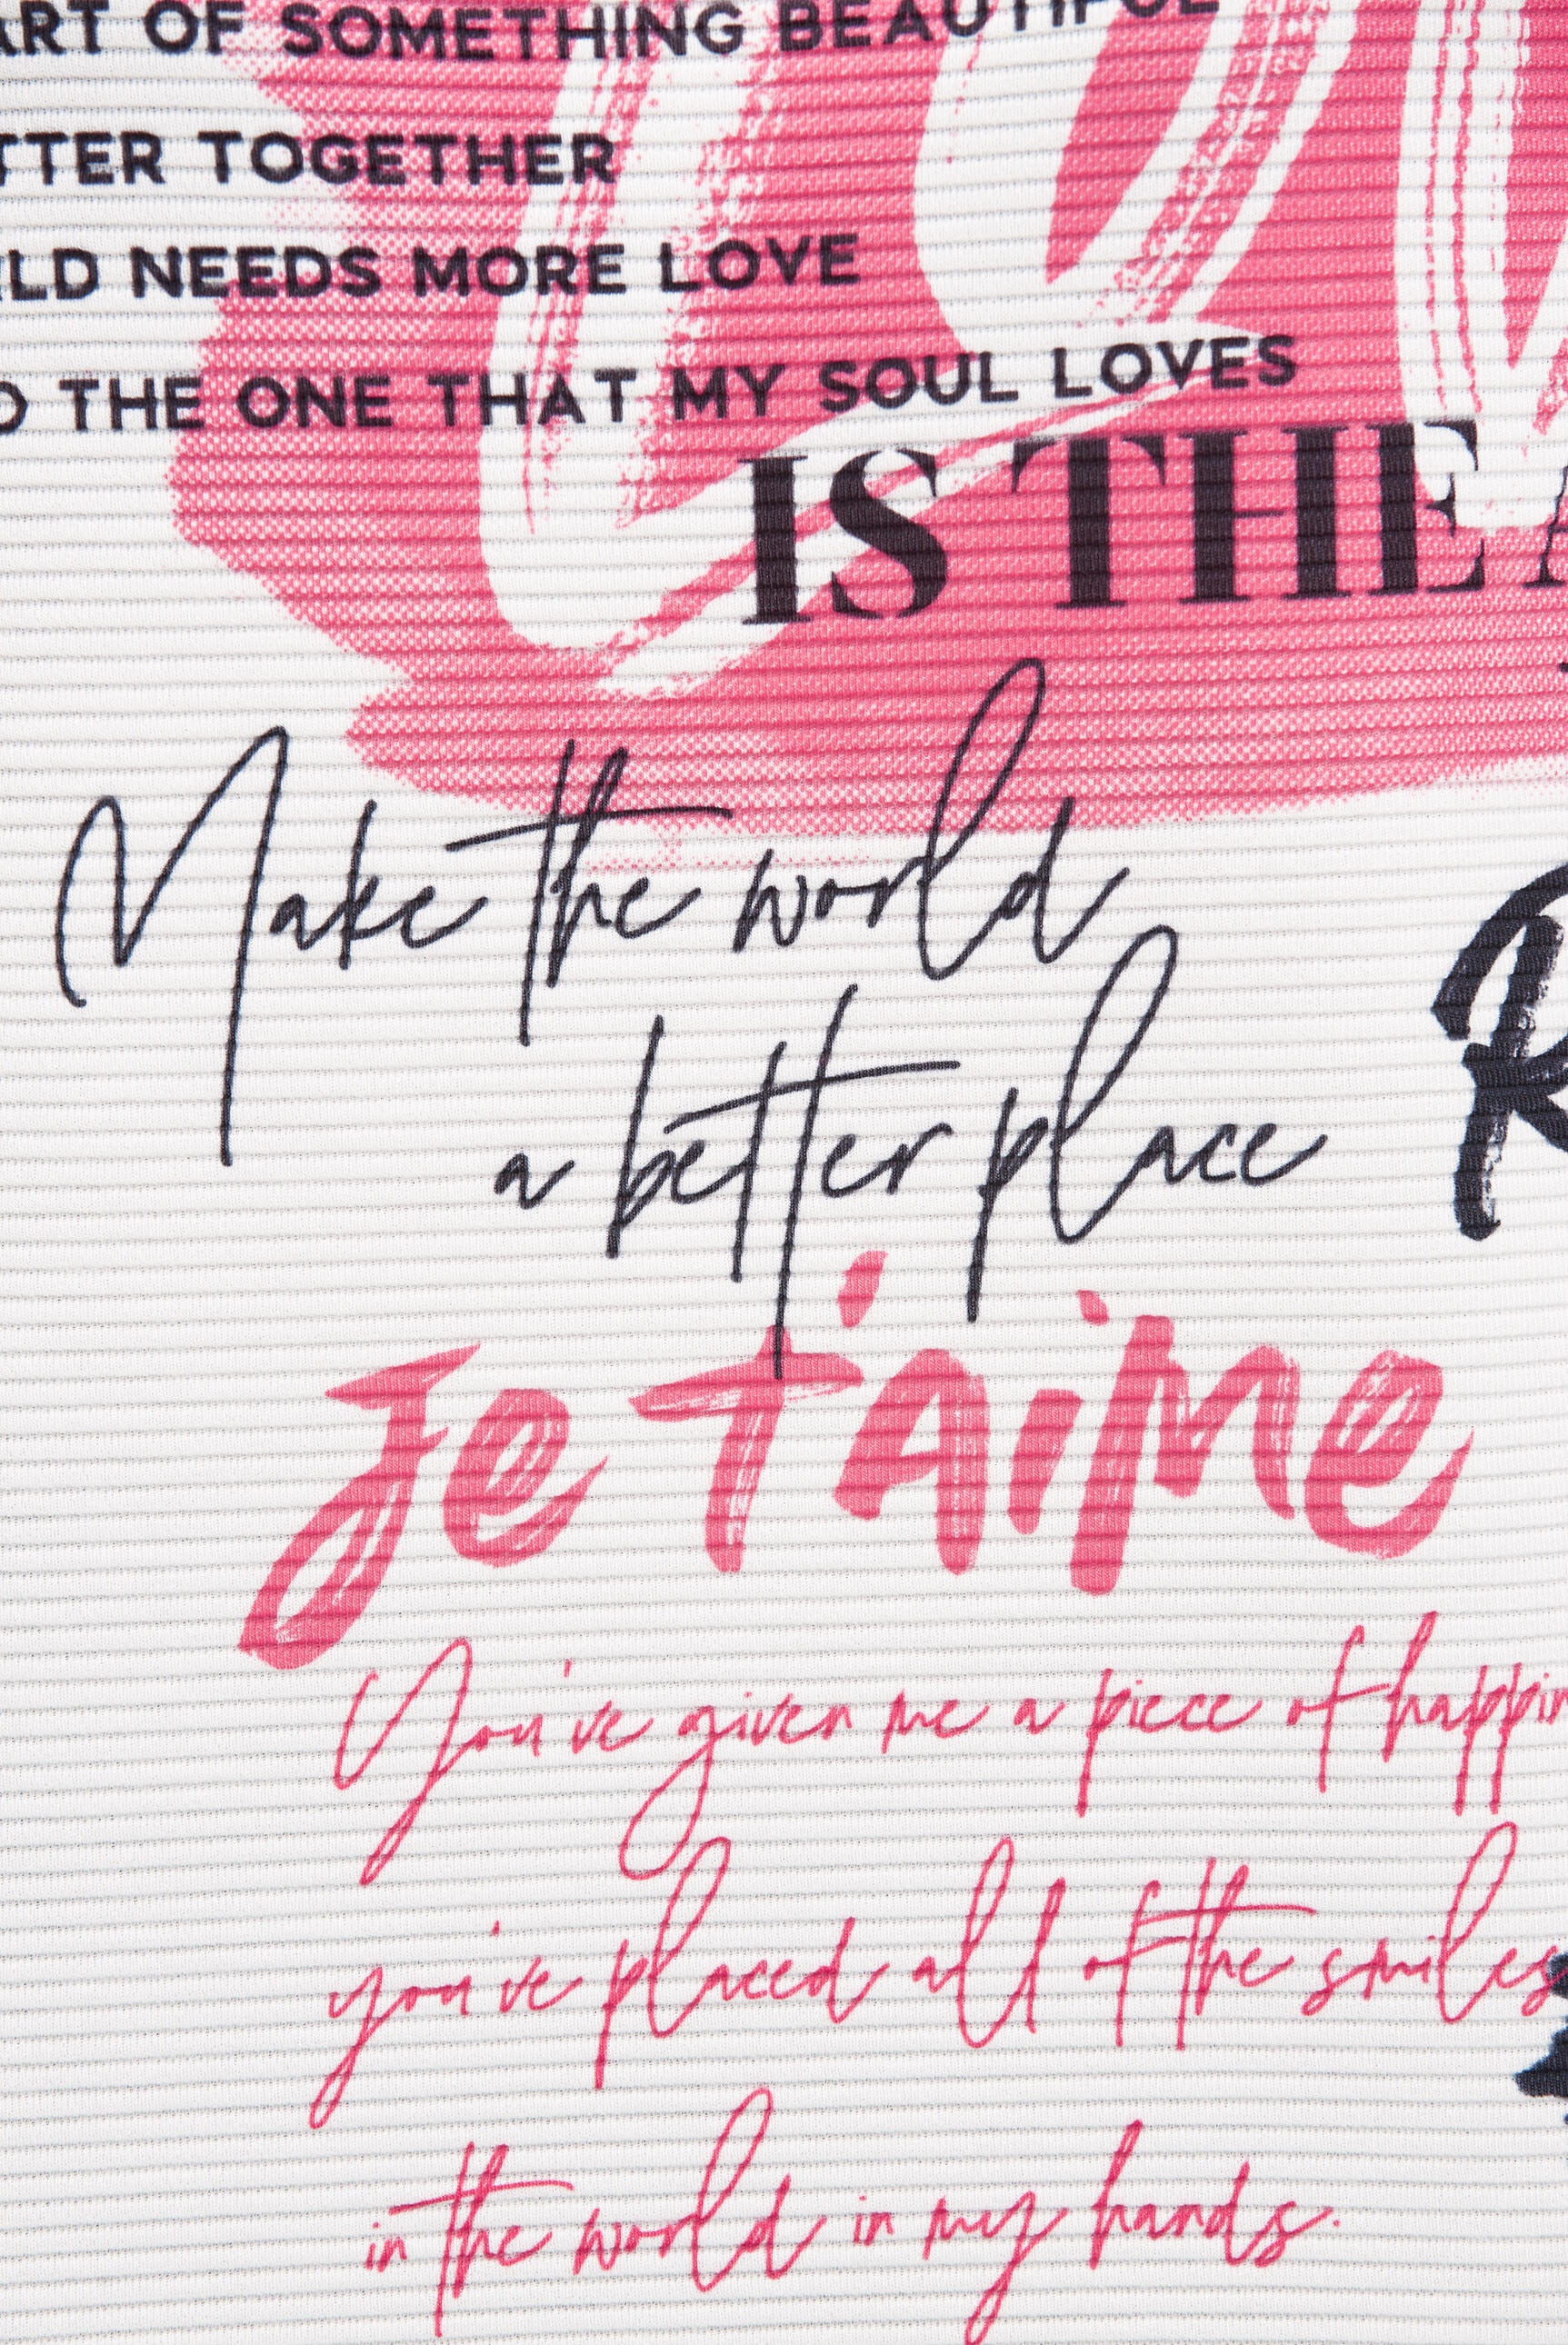 ART OF SOMETHING BEAUTIFUL
TTER TOGETHER
RLD NEEDS MORE LOVE
O THE ONE THAT MY SOUL LOVES
IS THE
Make the world
a better place
R
Je T'aime
You've given me a piece of happin
you've placed all of the smiles
in the world in my hands.